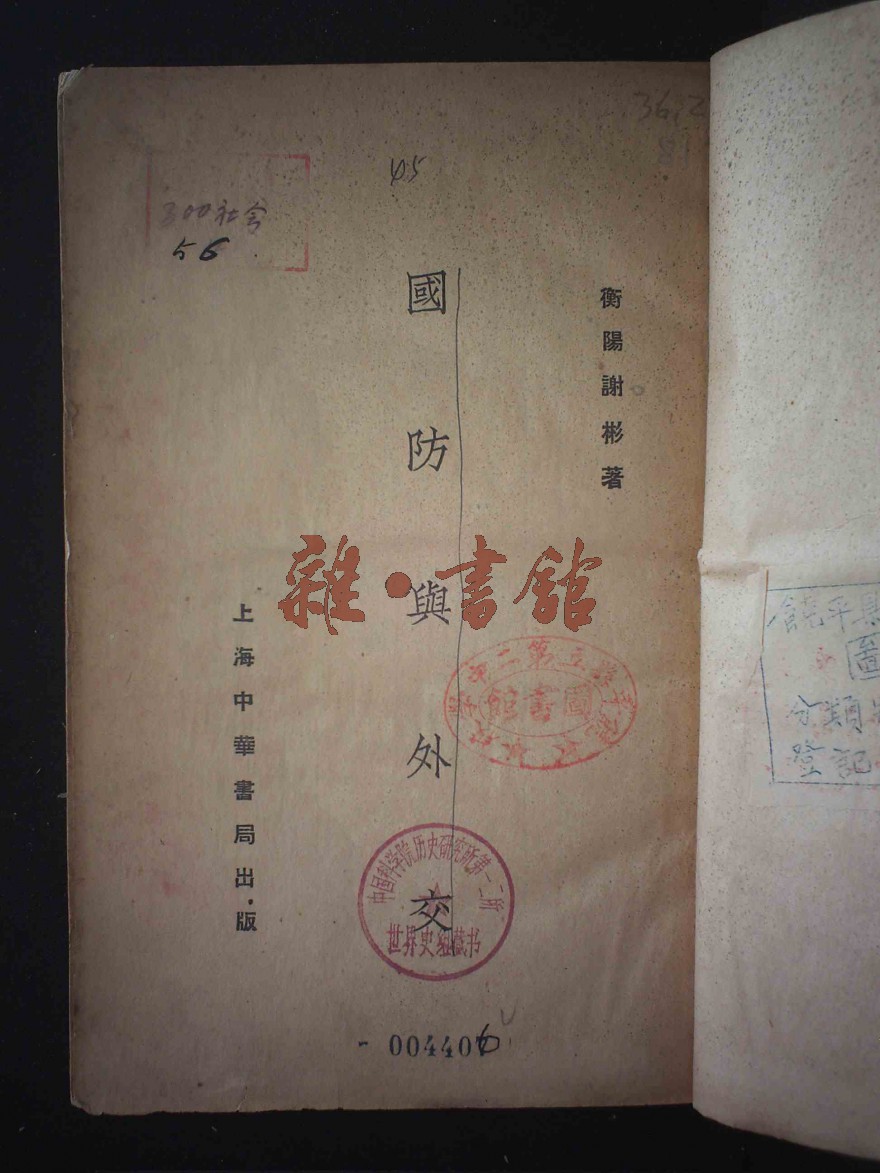 衡陽謝彬著
國防與外交
上海中華書局出版
雜·書館
45
300社会
56
36.2
圖書館
中国科学院历史研究所第一二所
世界史组藏书
004406
饒平县
圖
分類
登記